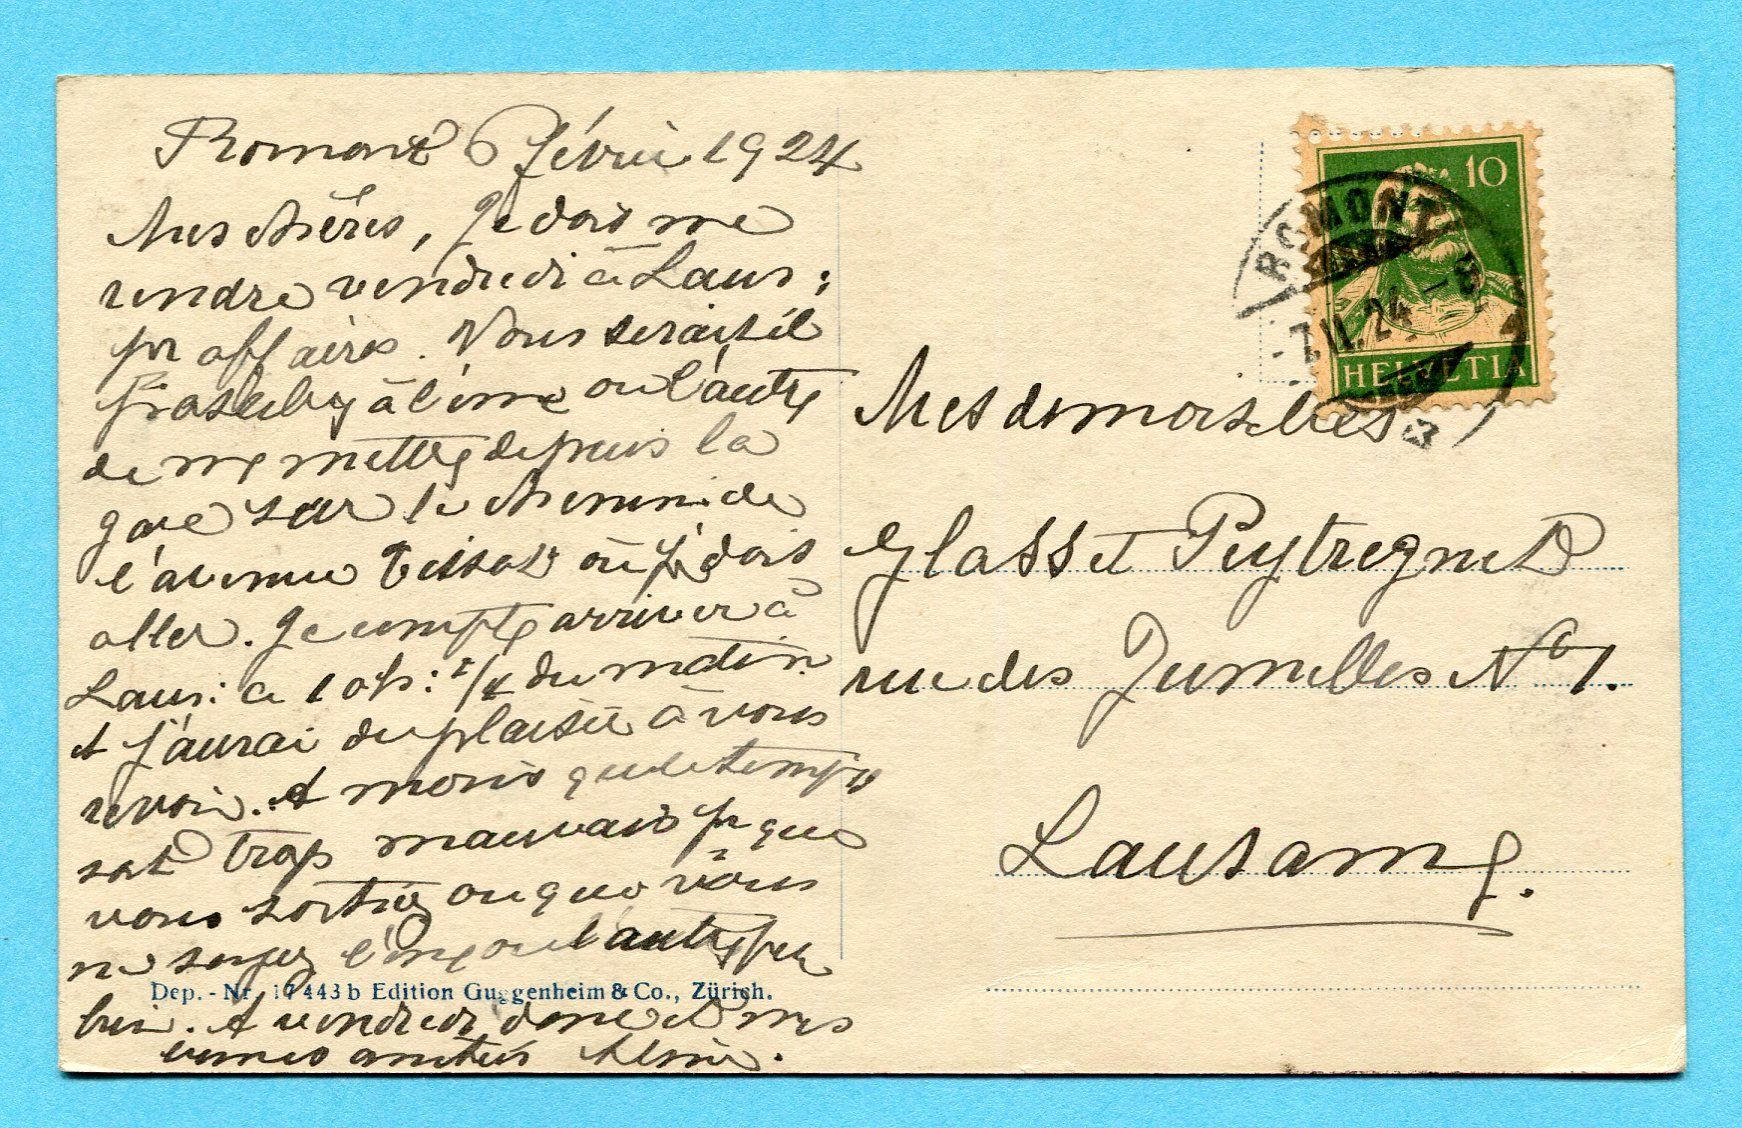 Romont 6 février 1924
Mes chères, Je dois me
rendre vendredi à Laus:
pr affaires. Vous serait-il
possible, à l'une ou l'autre
de me mettre depuis la
gare sur le chemin de
l'avenue Tissot où je dois
aller. Je compte arriver à
Laus: à 10h: 1/4 du matin
et j'aurai du plaisir à vous
revoir. A moins que le temps
soit trop mauvais pr que
vous sortiez ou que vous
ne soyez l'une ou l'autre pas
bien. A vendredi donc et mes
amitiés
Dep.-Nr. 17443b Edition Guggenheim & Co., Zürich.
10
HELVETIA
ROMONT
7.II.24
Mesdemoiselles
Glasset Peytregnet
rue des Jumelles No 1.
Lausanne.